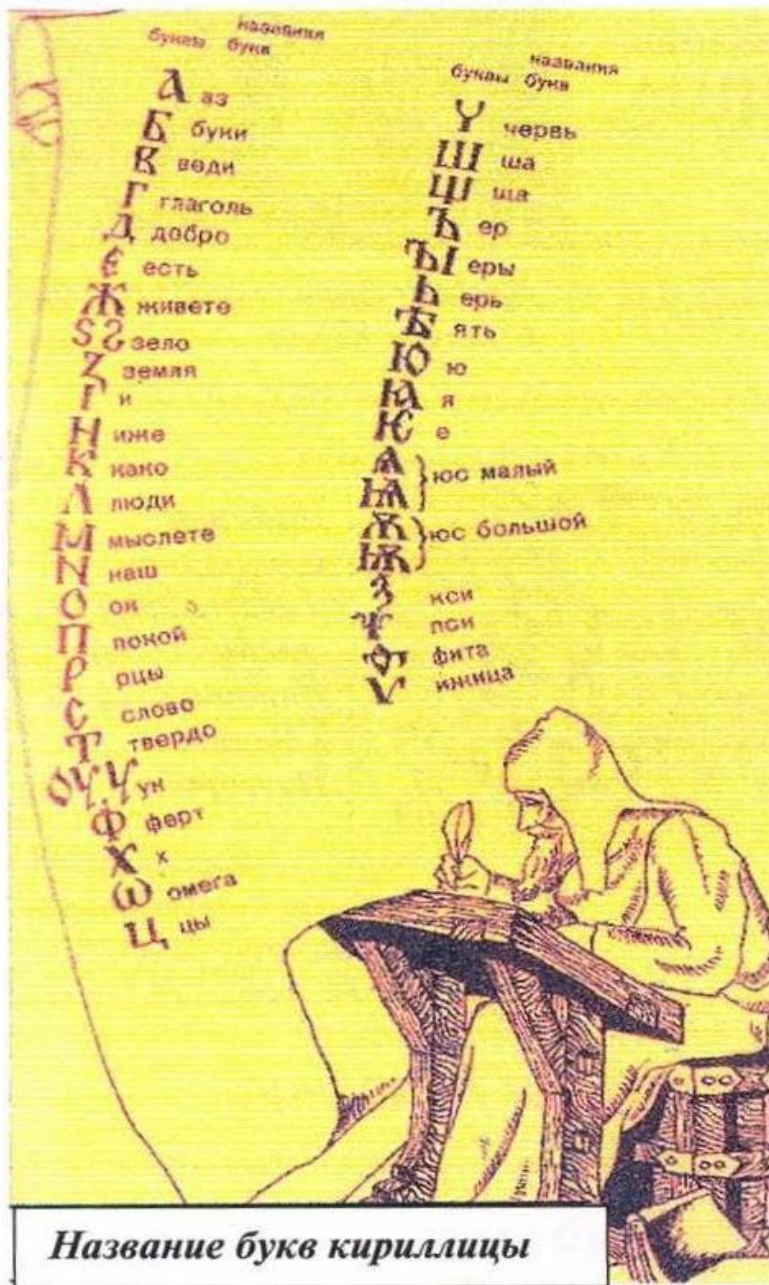 названия
буквы букв
А аз
Б буки
В веди
Г глаголь
Д добро
Є есть
Ж живете
Ѕ Ꙅ зело
Ꙁ земля
І и
Н иже
К како
Л люди
М мыслете
N наш
О он
П покой
Р рцы
С слово
Т твердо
ОУ, Ү ук
Ф ферт
Х х
Ѡ омега
Ц цы
названия
буквы букв
Ч червь
Ш ша
Щ ща
Ъ ер
ЪІ еры
Ь ерь
Ѣ ять
Ю ю
Ꙗ я
Ѥ е
Ѧ
Ѩ } юс малый
Ѫ
Ѭ } юс большой
Ѯ кси
Ѱ пси
Ѳ фита
Ѵ ижица
Название букв кириллицы